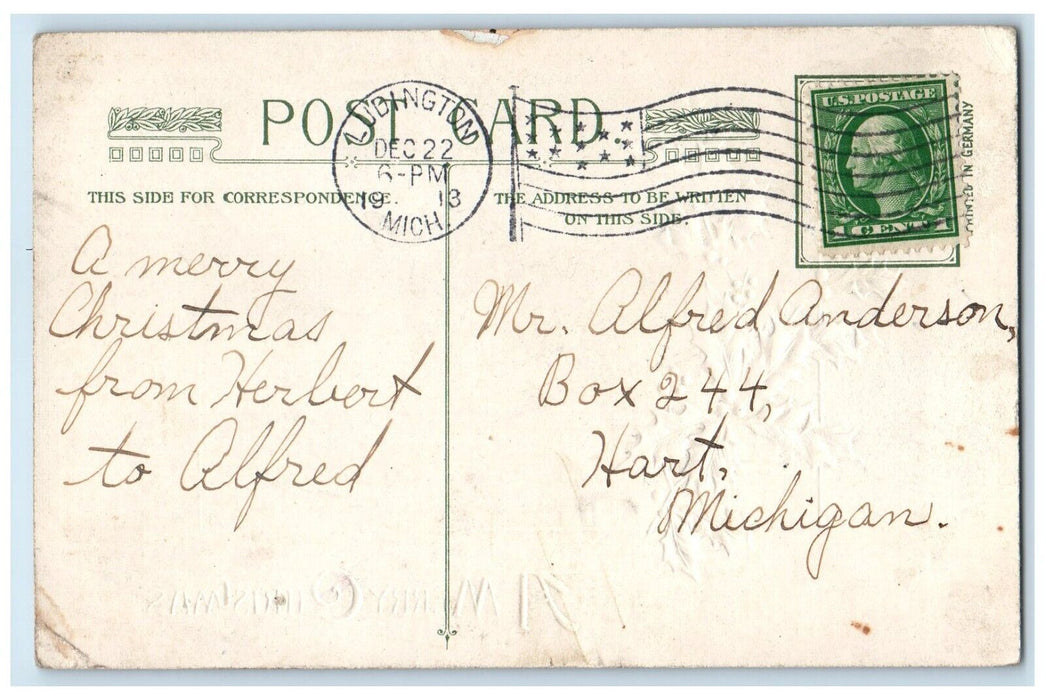 POST CARD.
LUDINGTON
DEC 22
6-PM
19 13
MICH.
U.S. POSTAGE
1 CENT 1
PRINTED IN GERMANY
THIS SIDE FOR CORRESPONDENCE.
THE ADDRESS TO BE WRITTEN
ON THIS SIDE.
A merry
Christmas
from Herbert
to Alfred
Mr. Alfred Anderson,
Box 244,
Hart,
Michigan.
A MERRY CHRISTMAS